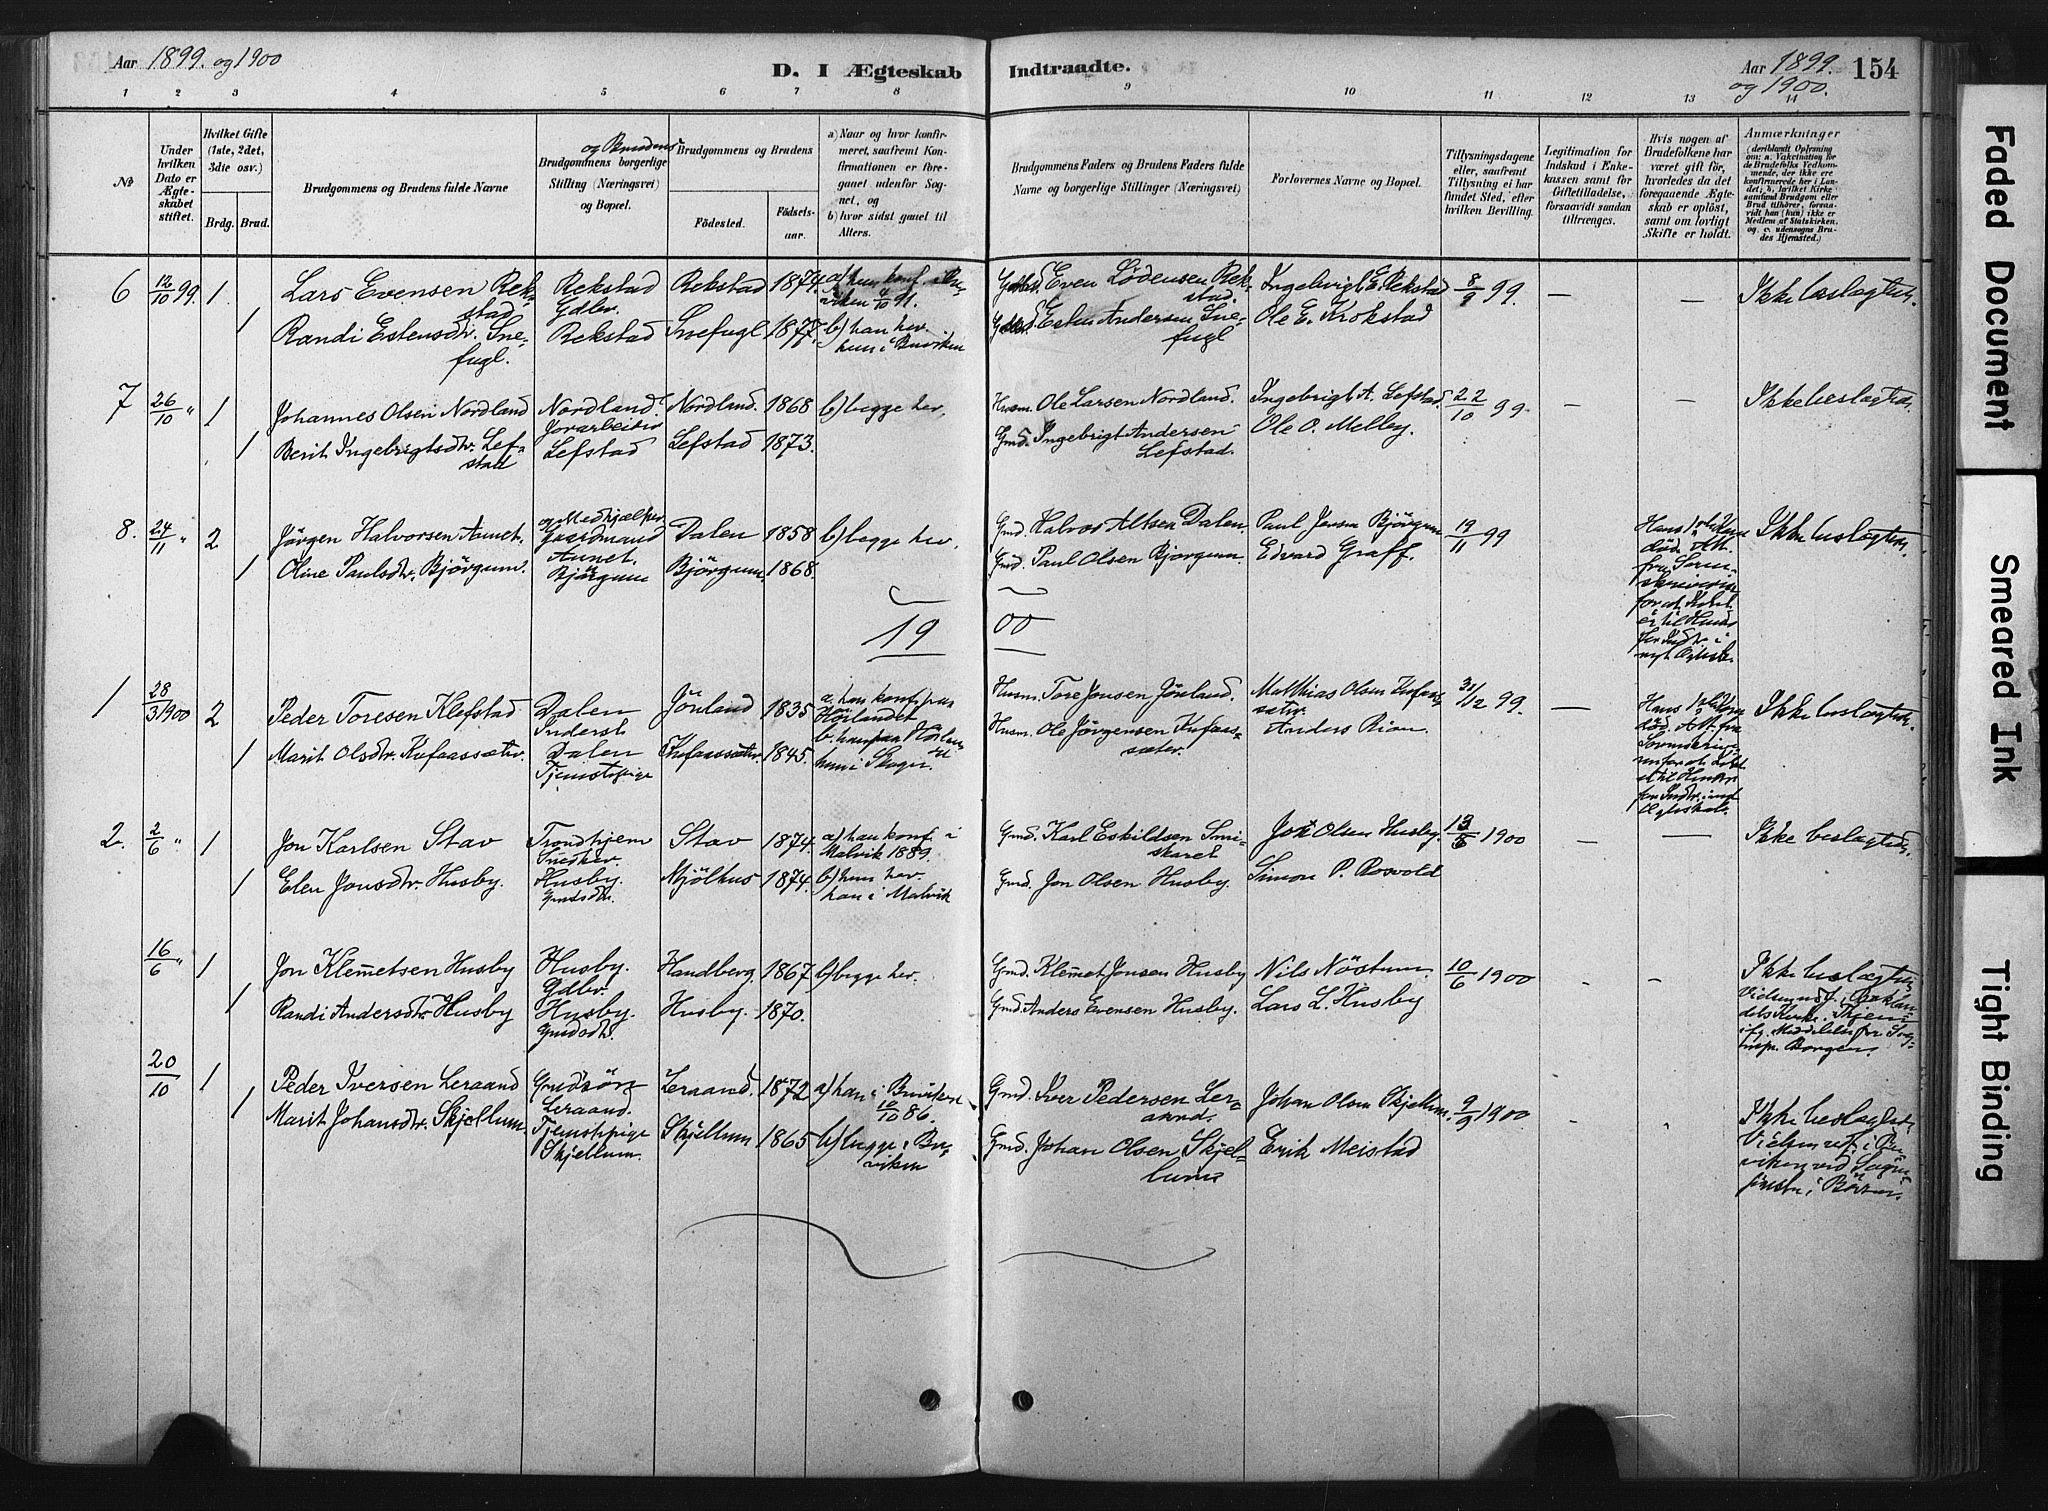 Aar 1899. og 1900
D. I Ægteskab Indtraadte.
Aar 1899. og 1900.
154
1 2 3 4 5 6 7 8 9 10 11 12 13 14
No
Under hvilken Dato er Ægteskabet stiftet.
Hvilket Gifte (1ste, 2det, 3die osv.)
Brdg. Brud.
Brudgommens og Brudens fulde Navne
og Brudens
Brudgommens borgerlige Stilling (Næringsvei) og Bopæl.
Brudgommens og Brudens
Fødested. Fødselsaar.
a) Naar og hvor konfirmeret, saafremt Konfirmationen er foregaaet udenfor Sognet, og
b) hvor sidst gaaet til Alters.
Brudgommens Faders og Brudens Faders fulde Navne og borgerlige Stillinger (Næringsvei)
Forlovernes Navne og Bopæl.
Tillysningsdagene eller, saafremt Tillysning ei har fundet Sted, efter hvilken Bevilling.
Legitimation for Indskud i Enkekassen samt for Giftetilladelse, forsaavidt saadan tiltrænges.
Hvis nogen af Brudefolkene har været gift før, hvorledes da det foregaaende Ægteskab er opløst, samt om lovligt Skifte er holdt.
Anmærkninger (deriblandt Oplysning om: a. Vaccination for de Brudefolks Vedkommende, der ikke ere konfirmerede her i Landet; b. hvilket Kirkesamfund Brudgom eller Brud tilhører, forsaavidt han (hun) ikke er Medlem af Statskirken, og c. udensogns Brudes Hjemsted.)
6 12/10 99. 1 Lars Evensen Rekstad Rekstad Gdbr. Rekstad 1874. a) hun konf. i Buviken 4/10 91. Even Lødensen Rekstad. Ingebrigt E. Rekstad 8/9 99. — — Ikke beslægtede.
1 Randi Estensdtr. Snefugl. Rekstad Snefugl 1877. b) han her. hun i Buviken Esten Andersen Snefugl Ole E. Krokstad
7 26/10 " 1 Johannes Olsen Nordland Nordland Jorarbeider Nordland. 1868 b) begge her. Husm. Ole Larsen Nordland. Ingebrigt A. Lefstad. 22/10 99. — — Ikke beslægtede.
1 Berit Ingebrigtsdtr. Lefstad Lefstad Lefstad 1873. Gmd. Ingebrigt Andersen Lefstad. Ole O. Melby.
8. 24/11 " 2 Jørgen Halvorsen Aunet. og Medhjælper Gaardmand Aunet. Dalen 1858 b) begge her. Gmd. Halvor Altsen Dalen. Paul Jensen Bjørgum 19/11 99 — Ikke beslægtede.
1 Oline Paulsdtr. Bjørgum. Bjørgum Bjørgum 1868. Gmd. Paul Olsen Bjørgum. Edvard Graff.
19 00
1 28/3 1900 2 Peder Toresen Klefstad Dalen Inderst Jönland 1835 Husm. Tore Jonsen Jönland. Matthias Olsen 31/12 99. — Ikke beslægtede.
1 Marit Olsdtr. Kufaassæter. Dalen Tjenestepige Kufaassæter. 1845. hun i Skogn. Husm. Ole Jørgensen Kufaassæter. Anders Rian.
2. 2/6 " 1 Jon Karlsen Stav Trondhjem Snedker. Stav 1874. a) han konf. i Malvik 1889. Gmd. Karl Eskildsen Smiskaret Jon Olsen Husby. 13/5 1900 — — Ikke beslægtede.
1 Elen Jonsdtr. Husby. Husby. Gmdsdtr. Mjölhus 1874. b) hun her. han i Malvik Gmd. Jon Olsen Husby. Simon P. Rosvold
16/6 " 1 Jon Klemetsen Husby Husby. Gdbr. Handberg. 1867. b) begge her. Gmd. Klemet Jonsen Husby Nils Nöstum. 10/6 1900 - - Ikke beslægtede.
1 Randi Andersdtr. Husby Husby. Gmdsdtr. Husby. 1870. Gmd. Anders Evensen Husby. Lars L. Husby
20/10 1 Peder Iversen Leraand Gmdsön Leraand. Leraand. 1872 a) han i Buviken 10/10 86. Gmd. Iver Pedersen Leraand. Johan Olsen Skjellum. 9/9 1900 - - Ikke beslægtede.
1 Marit Johansdtr. Skjellum. Tjenestepige Skjellum. Skjellum 1865 b) begge i Buviken Gmd. Johan Olsen Skjellum Erik Meistad
Faded Document
Smeared Ink
Tight Binding